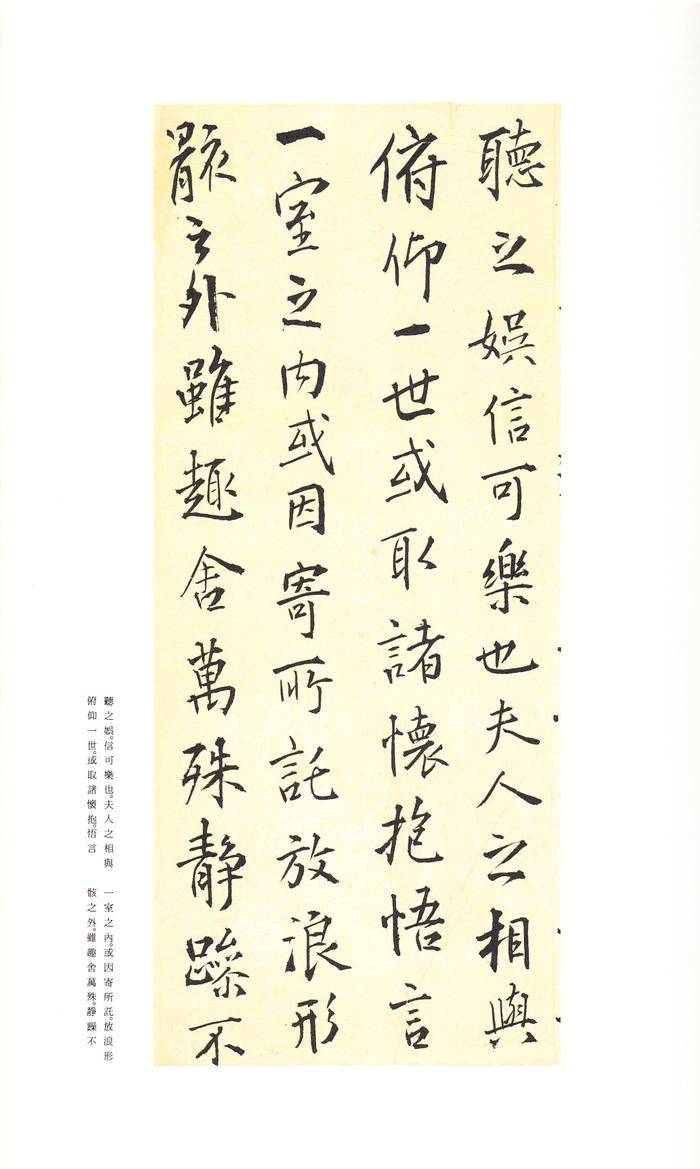 聽之娛信可樂也夫人之相與
俯仰一世或取諸懷抱悟言
一室之内或因寄所託放浪形
骸之外雖趣舍萬殊靜躁不
聽之娛。信可樂也。夫人之相與
俯仰一世。或取諸懷抱。悟言
一室之內。或因寄所託。放浪形
骸之外。雖趣舍萬殊。靜躁不